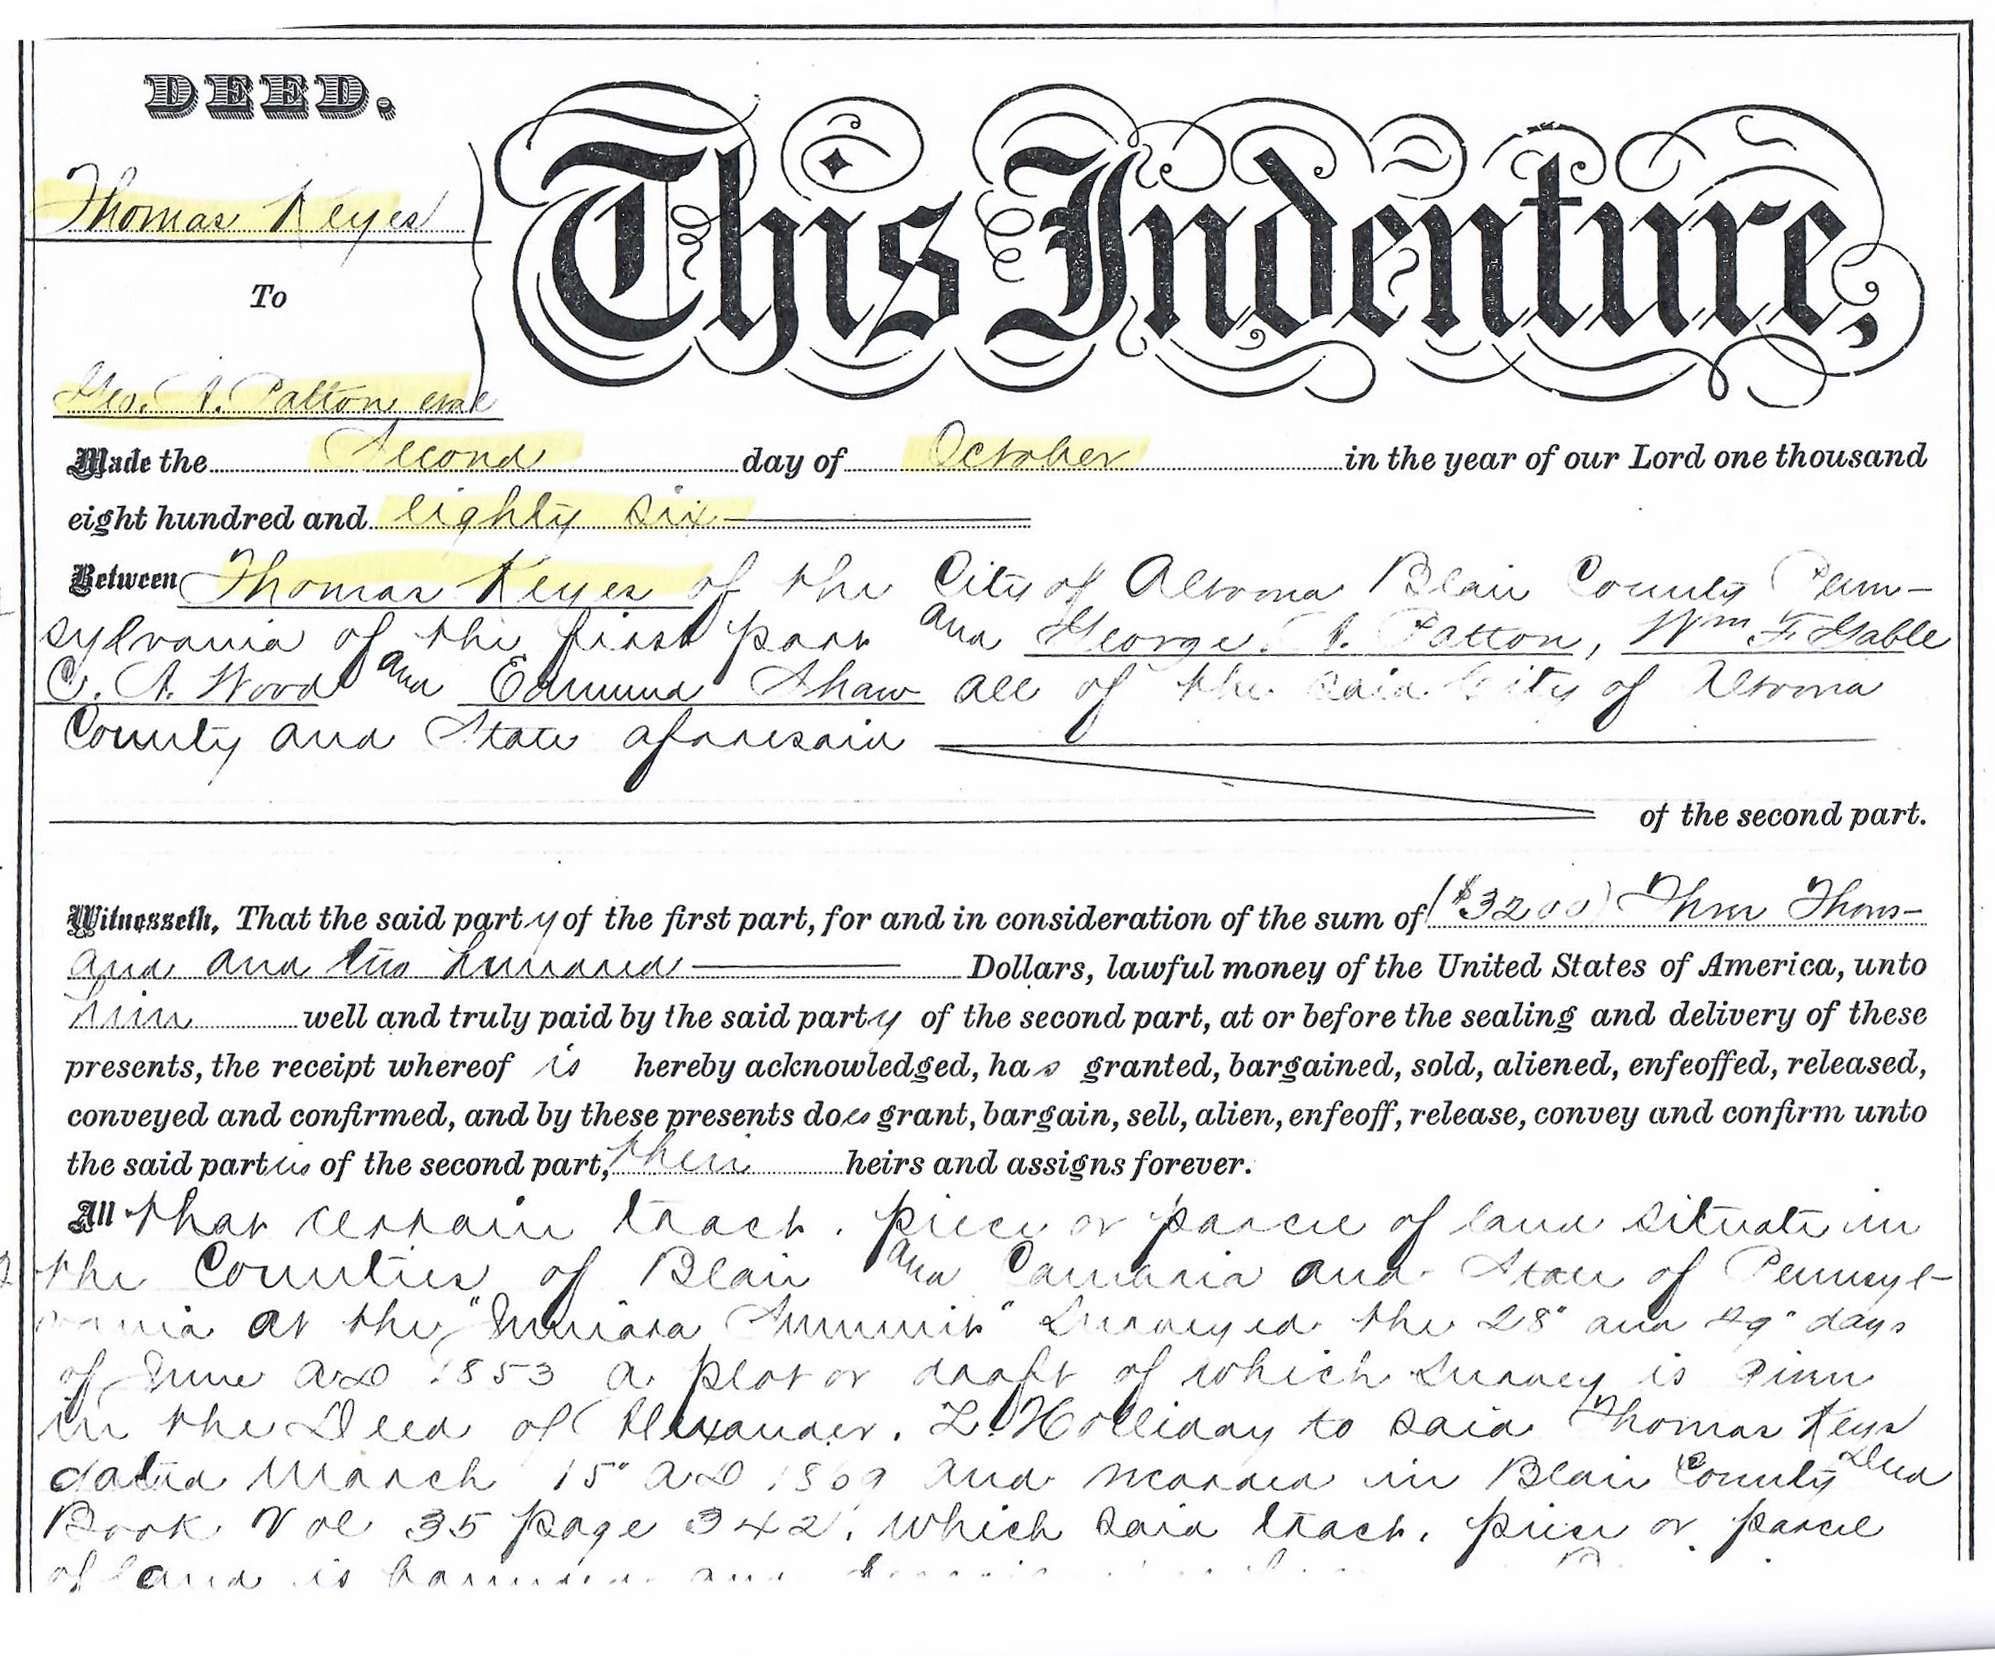 DEED.
This Indenture,
Thomas Keyes
To
Geo. A. Patton et al
Made the Second day of October in the year of our Lord one thousand
eight hundred and eighty six
Between Thomas Keyes of the City of Altoona Blair County Penn-
sylvania of the first part and George. A. Patton, Wm F. Gable
C. A. Wood and Edmund Shaw all of the said City of Altoona
County and State aforesaid
of the second part.
Witnesseth, That the said party of the first part, for and in consideration of the sum of ($3200) Three Thous-
and and two hundred Dollars, lawful money of the United States of America, unto
him well and truly paid by the said party of the second part, at or before the sealing and delivery of these
presents, the receipt whereof is hereby acknowledged, has granted, bargained, sold, aliened, enfeoffed, released,
conveyed and confirmed, and by these presents does grant, bargain, sell, alien, enfeoff, release, convey and confirm unto
the said parties of the second part, their heirs and assigns forever.
All that certain tract, piece or parcel of land situate in
the Counties of Blair and Cambria and State of Pennsyl-
vania at the Summit" Surveyed the 28" and 29" days
of June AD 1853 a plot or draft of which Survey is given
in the Deed of Alexander. L. Holliday to said Thomas Keys
dated March 15" AD 1869 and recorded in Blair County Deed
Book Vol 35 page 342, which said tract, piece or parcel
of land is bounded and